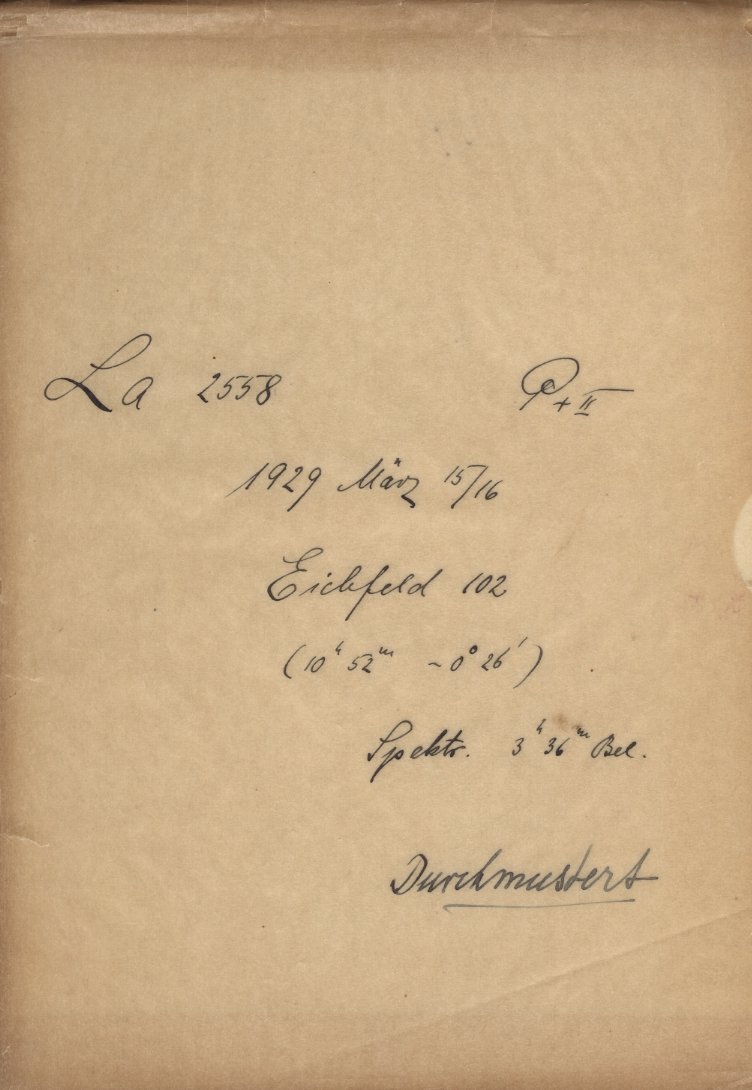 La 2558 P + II
1929 März 15/16
Eichfeld 102
(10ʰ 52ᵐ -0° 26′)
Spektr. 3ʰ 36ᵐ Bel.
Durchmustert